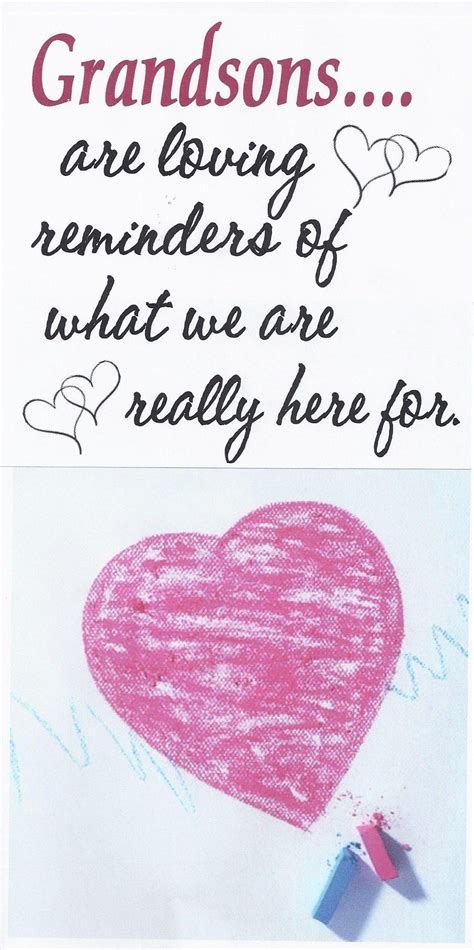 Grandsons....
are loving
reminders of
what we are
really here for.